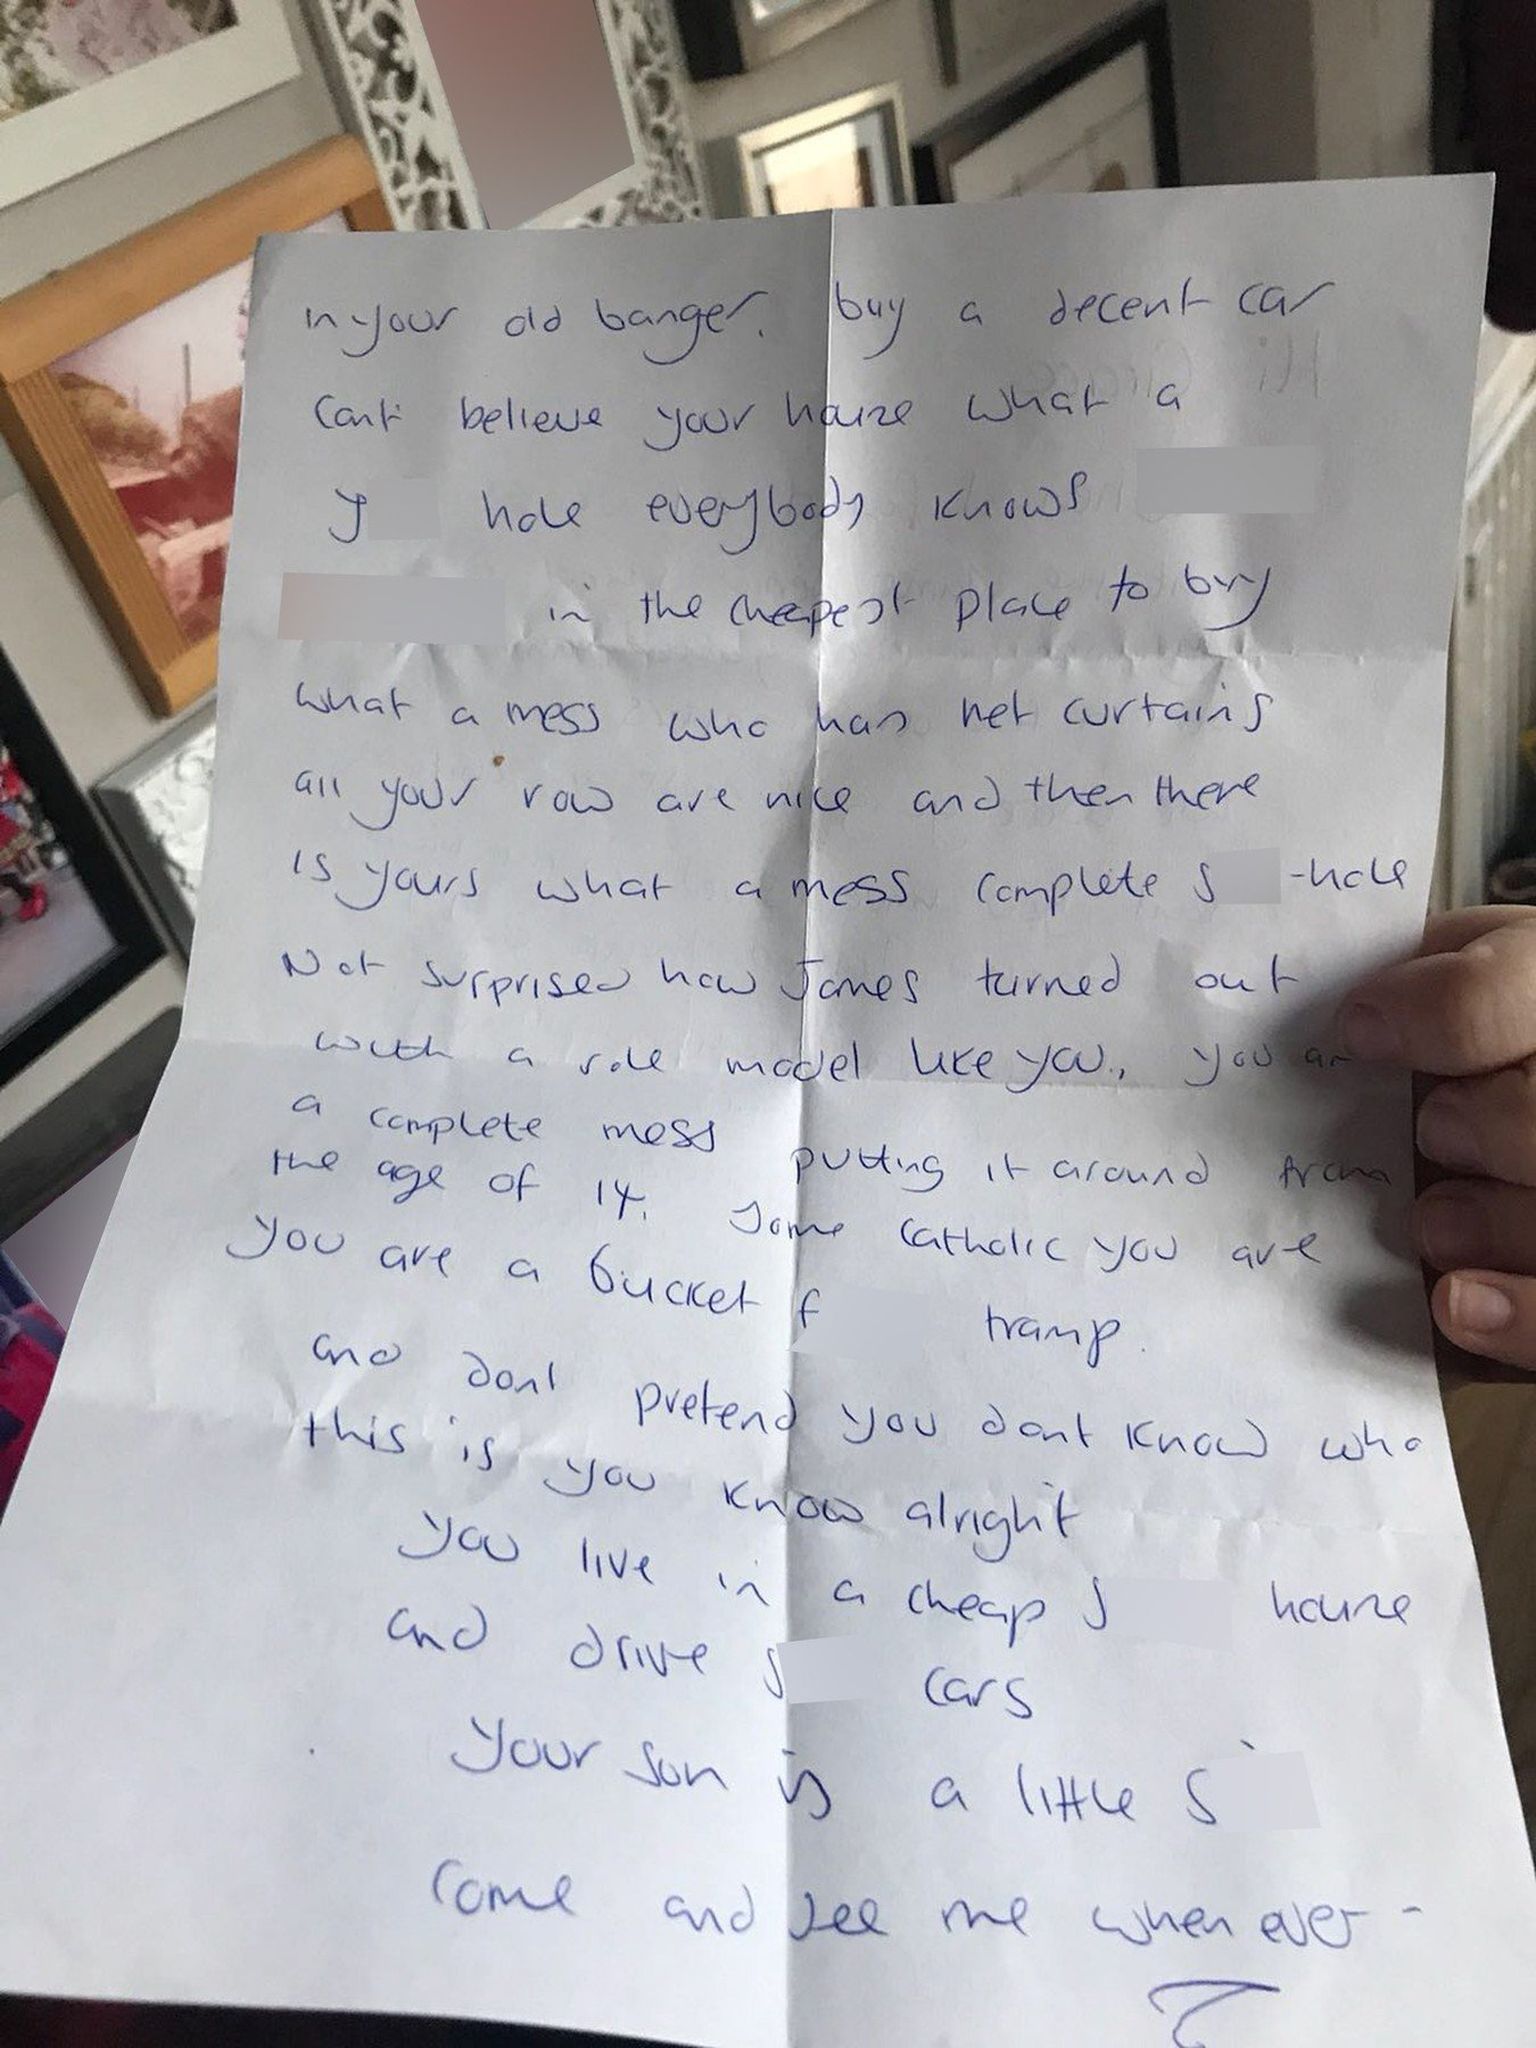 in your old banger. buy a decent car
Cant believe your house what a
S hole everybody knows
in the cheapest place to buy
what a mess who has net curtains
all your row are nice and then there
is yours what a mess complete S -hole
Not surprised how James turned out
with a role model like you., you are
a complete mess putting it around from
the age of 14. Some Catholic you are
you are a bucket f tramp.
and dont pretend you dont know who
this is you know alright
you live in a cheap S house
and drive S cars
Your son is a little S
Come and see me when ever -